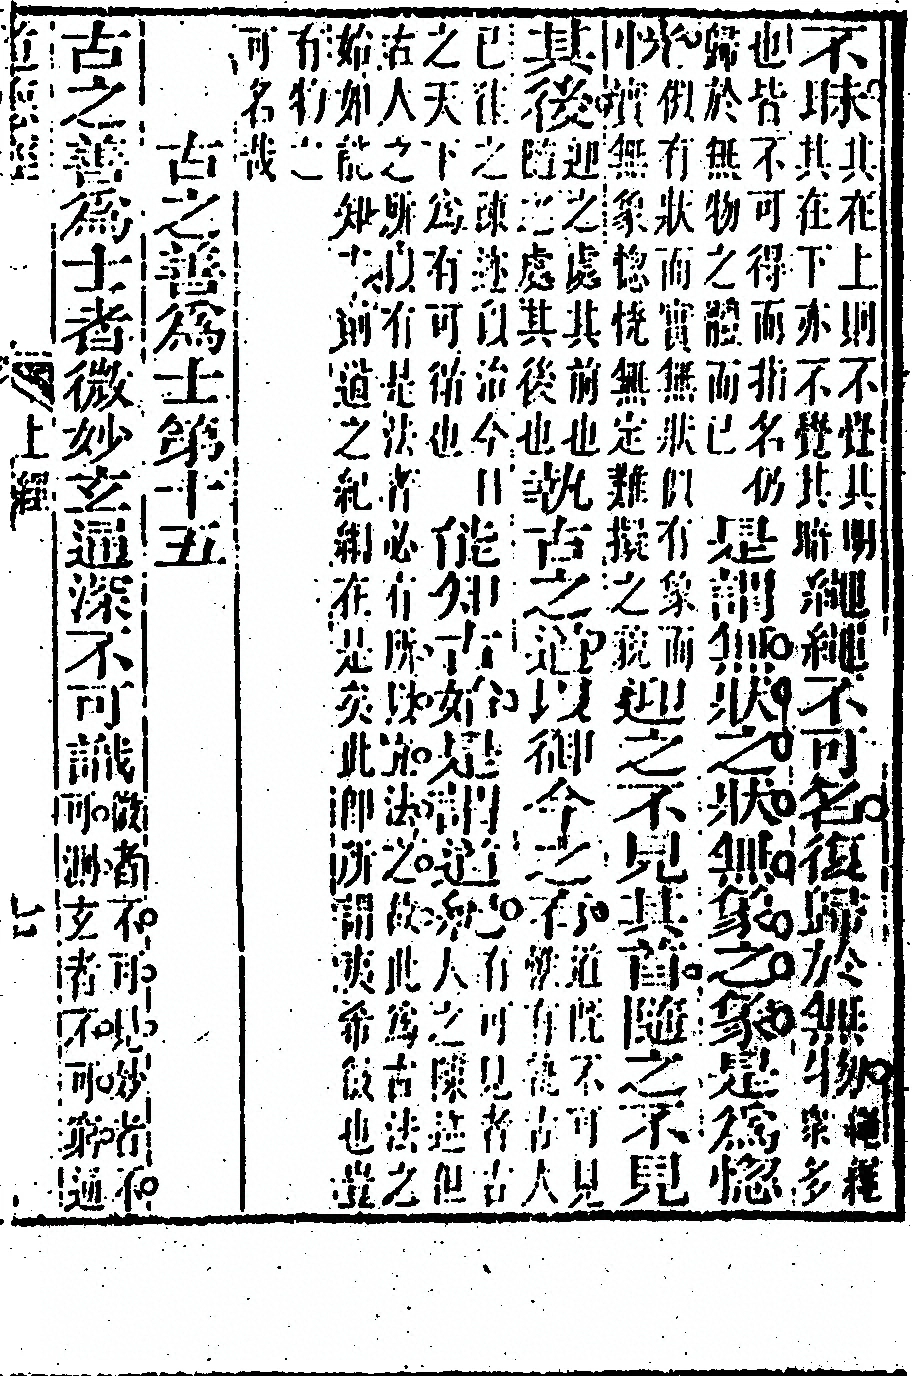 不昧其在上則不覺其明其在下亦不覺其暗繩繩不可名復歸於無物繩繩衆多
也皆不可得而指名仍歸於無物之體而已是謂無狀之狀無象之象是為惚
恍似有狀而實無狀似有象而實無象惚恍無定難擬之貌迎之不見其首隨之不見
其後迎之處其前也隨之處其後也執古之道以御今之有道既不可見然有從古人
已往之陳迹以治今日之天下為有可循也能知古始是謂道紀有可見者古人之陳迹但
古人之所以有是法者必有所以定法之故此為古法之始如能知古則道之紀綱在是矣此即所謂夷希微也豈
有物之可名哉
古之善為士第十五
古之善為士者微妙玄通深不可識微者不可見妙者不可測玄者不可窮通
道德經 上經